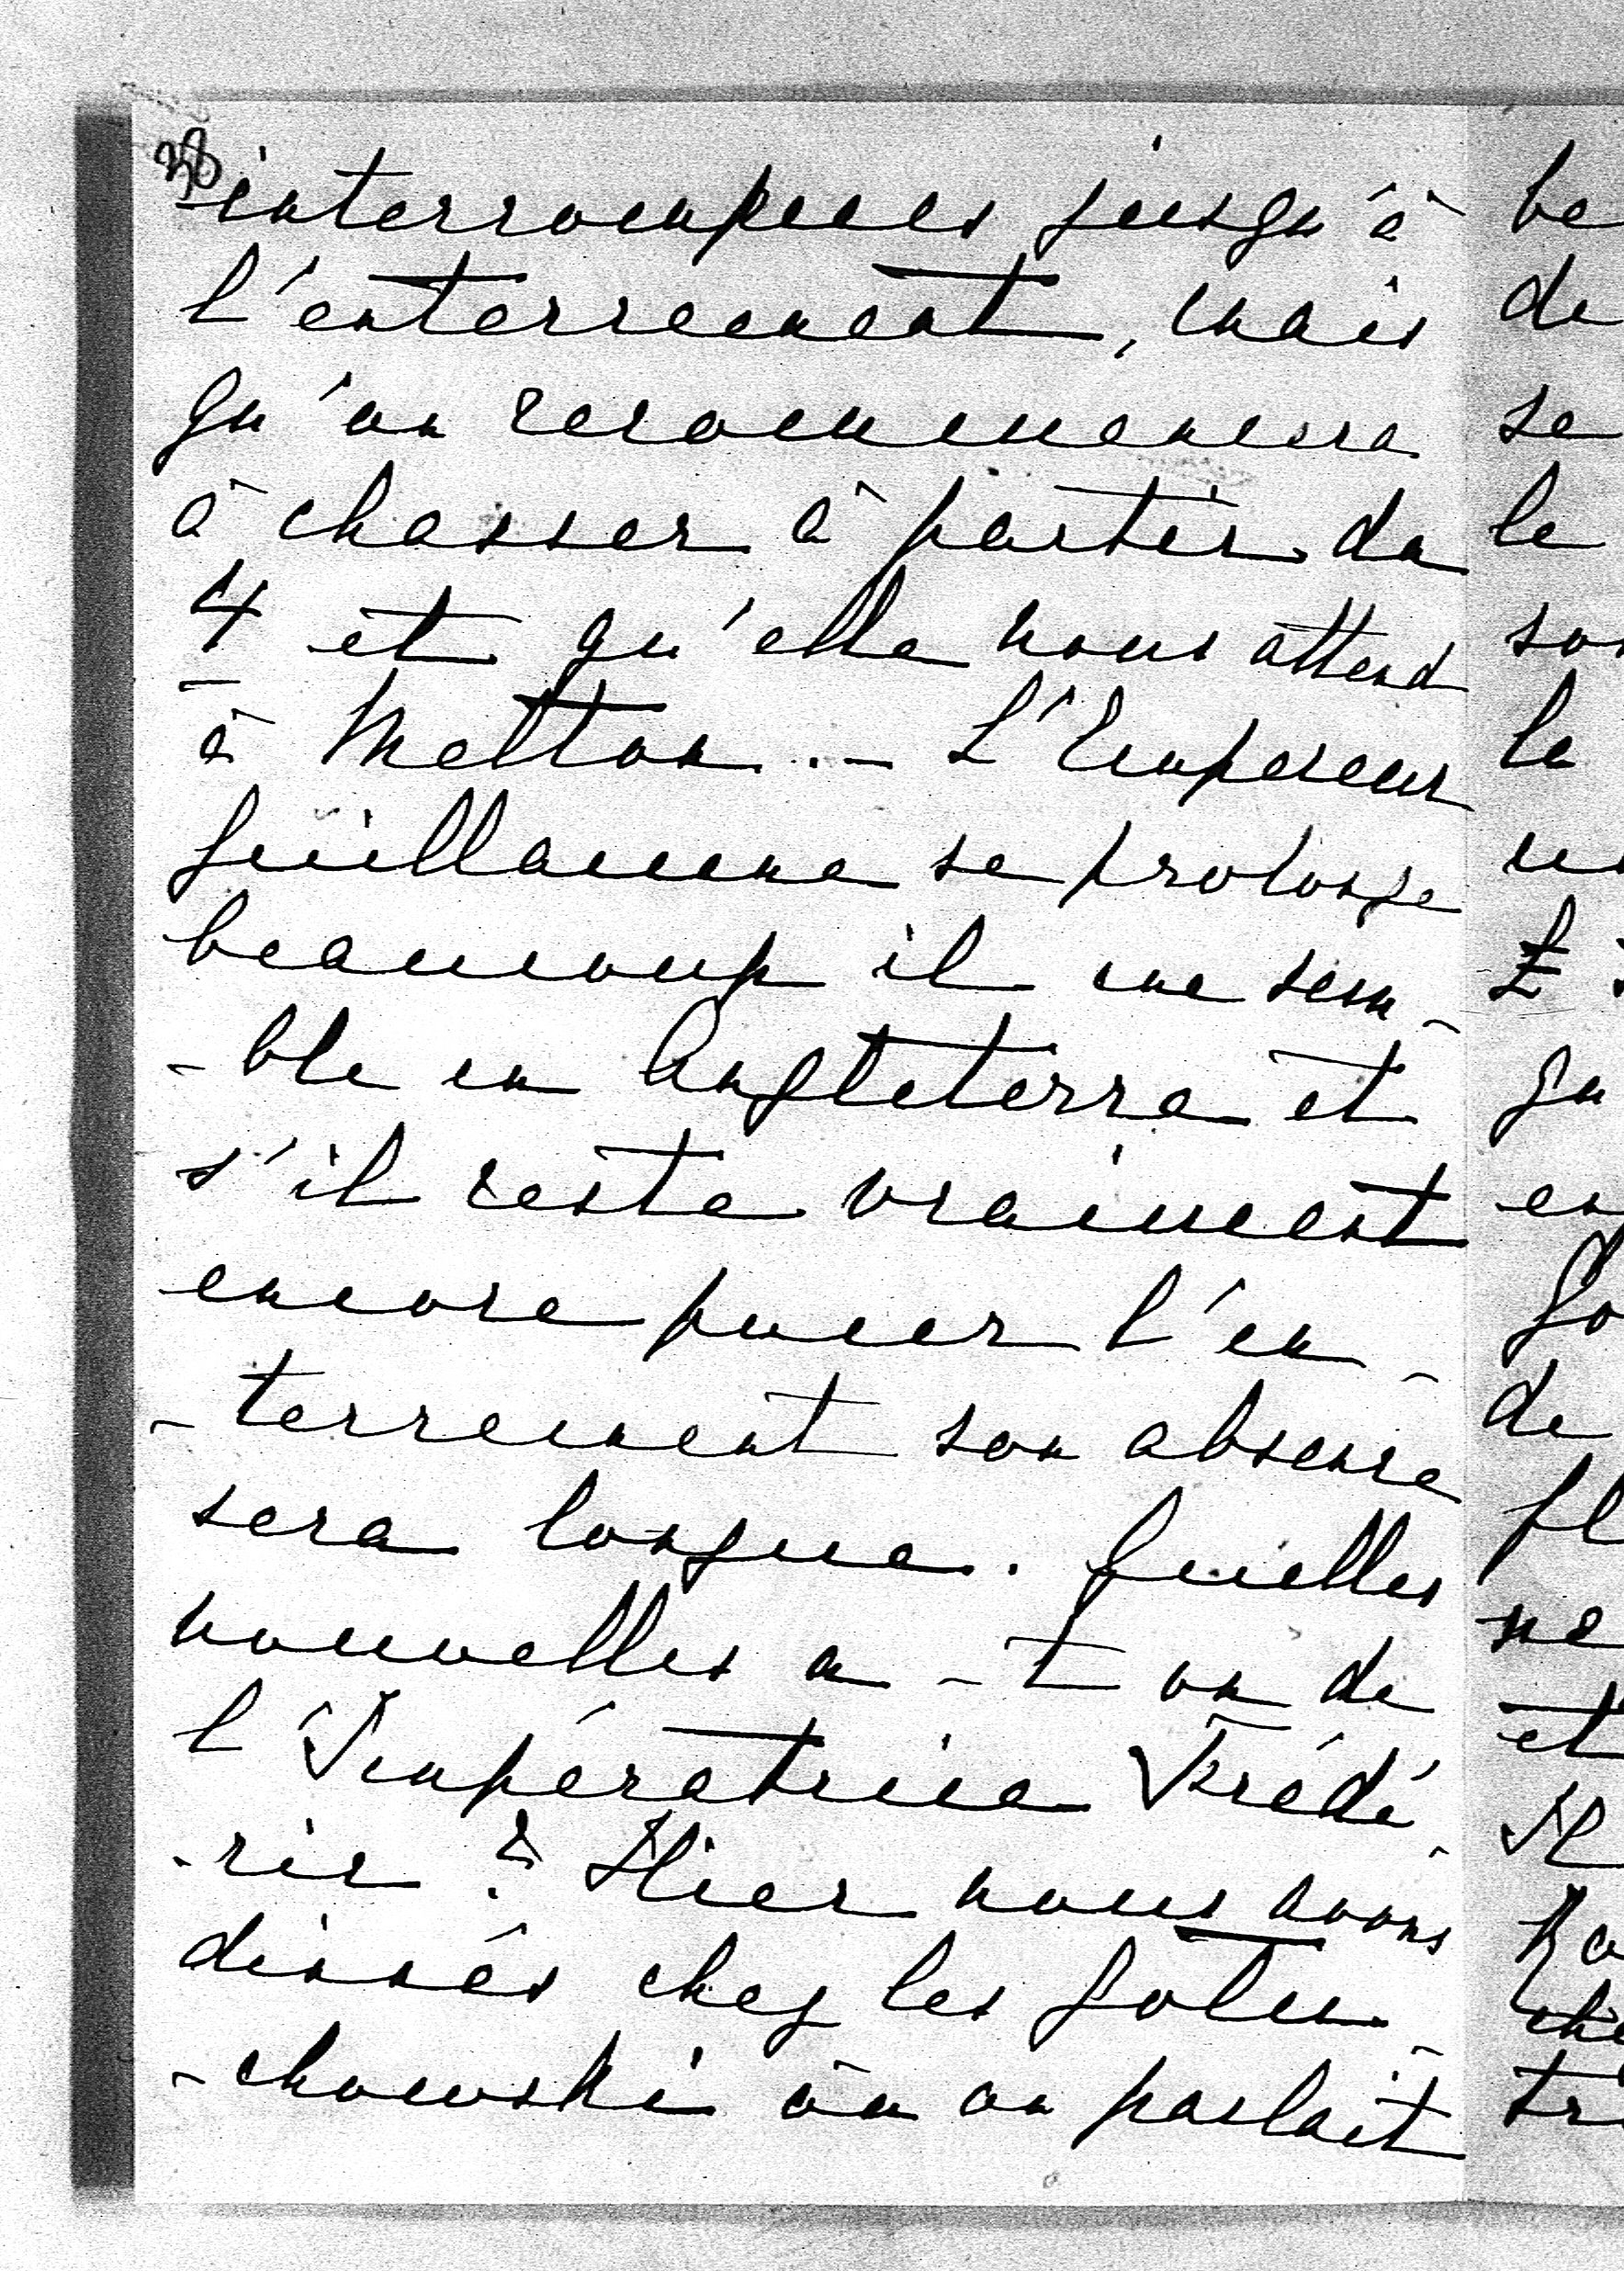 38
interrompues jusqu'à
l'enterrement, mais
qu'on recommencera
à chasser à partir du
4 et qu'elle nous attend
à Melton. – L'Empereur
Guillaume se prolonge
beaucoup il me sem-
-ble en Angleterre et
s'il reste vraiment
encore pour l'en-
-terrement son absence
sera longue. Quelles
nouvelles a-t on de
l'Impératrice Frédé-
-ric ? Hier nous avons
dinnés chez les Golu-
-chowski où on parlait
be
de
se
le
so
la
£
qu
en
Go
de
pl
ne
et
Il
che
tr